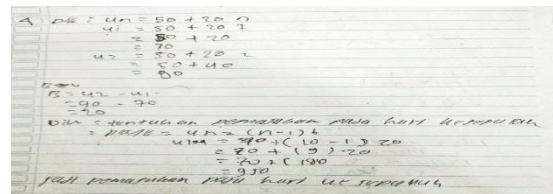 Dik : Un = 50 + 20 n
U1 = 50 + 20 1
= 50 + 20
= 70
U2 = 50 + 20 2
= 50 + 40
= 90
B = U2 - U1
= 90 - 70
= 20
Dit : tentukan pemasukan pada hari kesepuluh
= Un = (n-1) b
= 70 + (10 - 1) 20
= 70 + (9) 20
= 70 + (180
= 250
Jadi pemasukan pada hari ke sepuluh